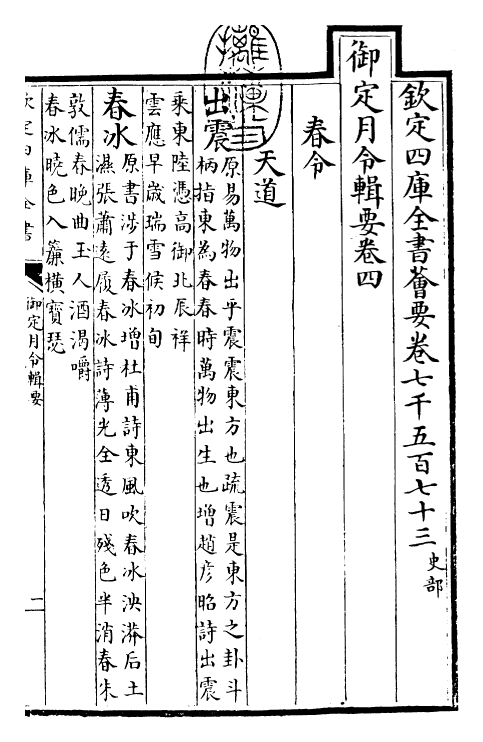 欽定四庫全書薈要卷七千五百七十三 史部
御定月令輯要卷四
春令
天道
出震 原易萬物出乎震震東方也疏震是東方之卦斗
柄指東為春春時萬物出生也增趙彦昭詩出震
乘東陸憑高御北辰祥
雲應早歲瑞雪候初旬
春冰 原書涉于春冰增杜甫詩東風吹春冰泱漭后土
濕張蕭遠履春冰詩薄光全透日殘色半消春朱
敦儒春晚曲玉人酒渴嚼
春冰曉色入簾橫寶瑟
欽定四庫全書
御定月令輯要